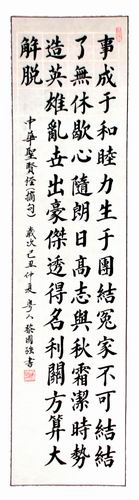 事成于和睦力生于團結冤家不可結結
了無休歇心隨朗日高志與秋霜潔時勢
造英雄亂世出豪傑透得名利關方算大
解脫
中華聖賢經(摘句) 歲次己丑仲夏 粵人黎國強書